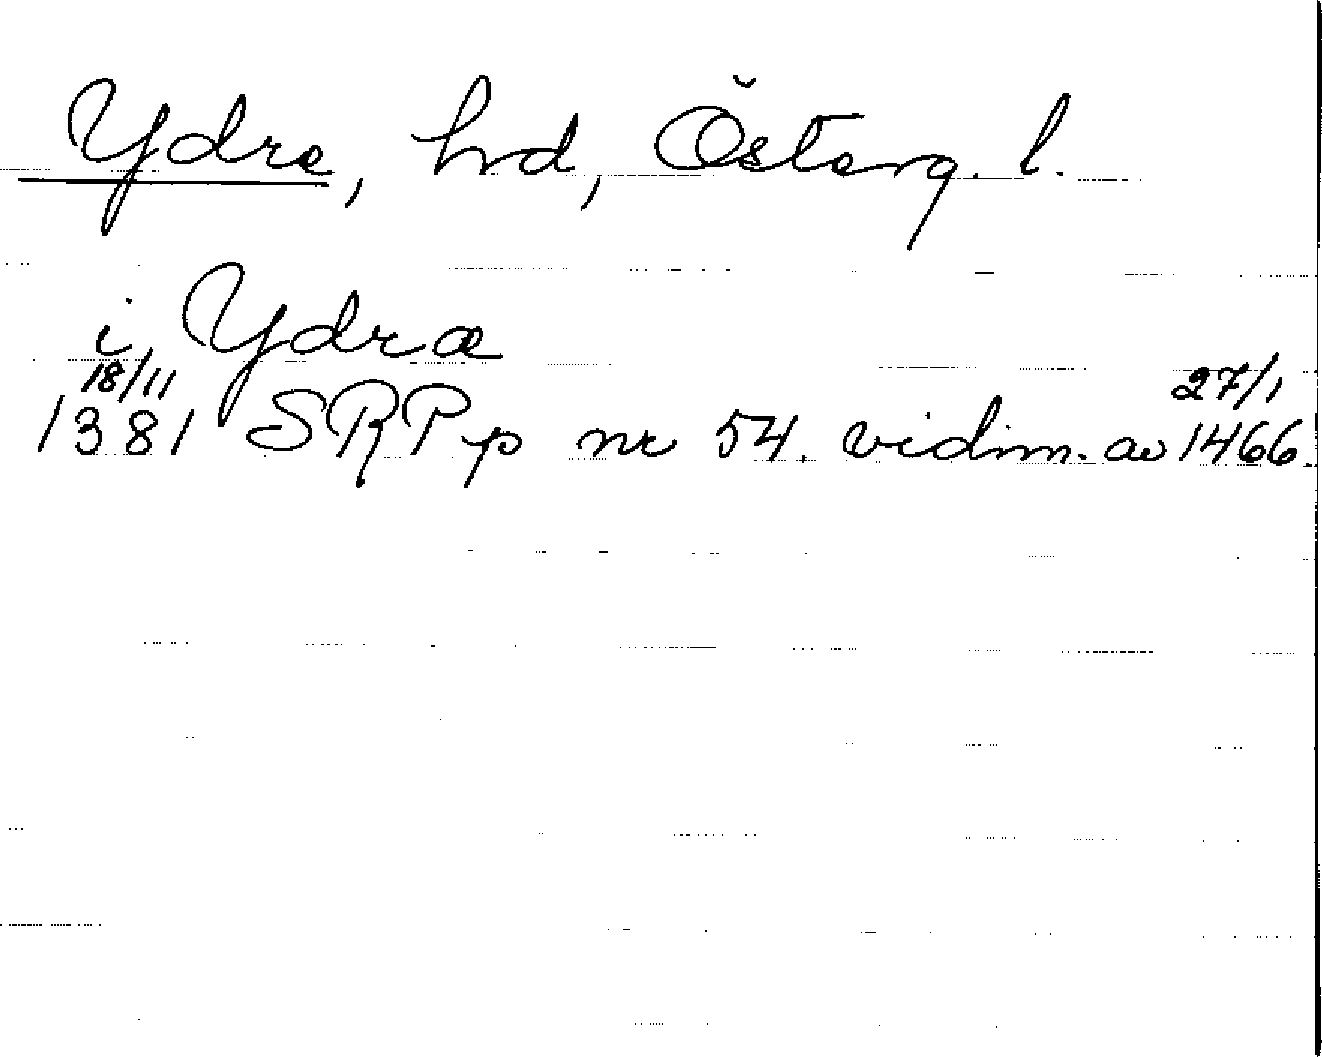 Ydre, hrd, Österg. l.
i Ydræ
18/11 27/1
1381 SRPp nr 54. vidim. av 1466.